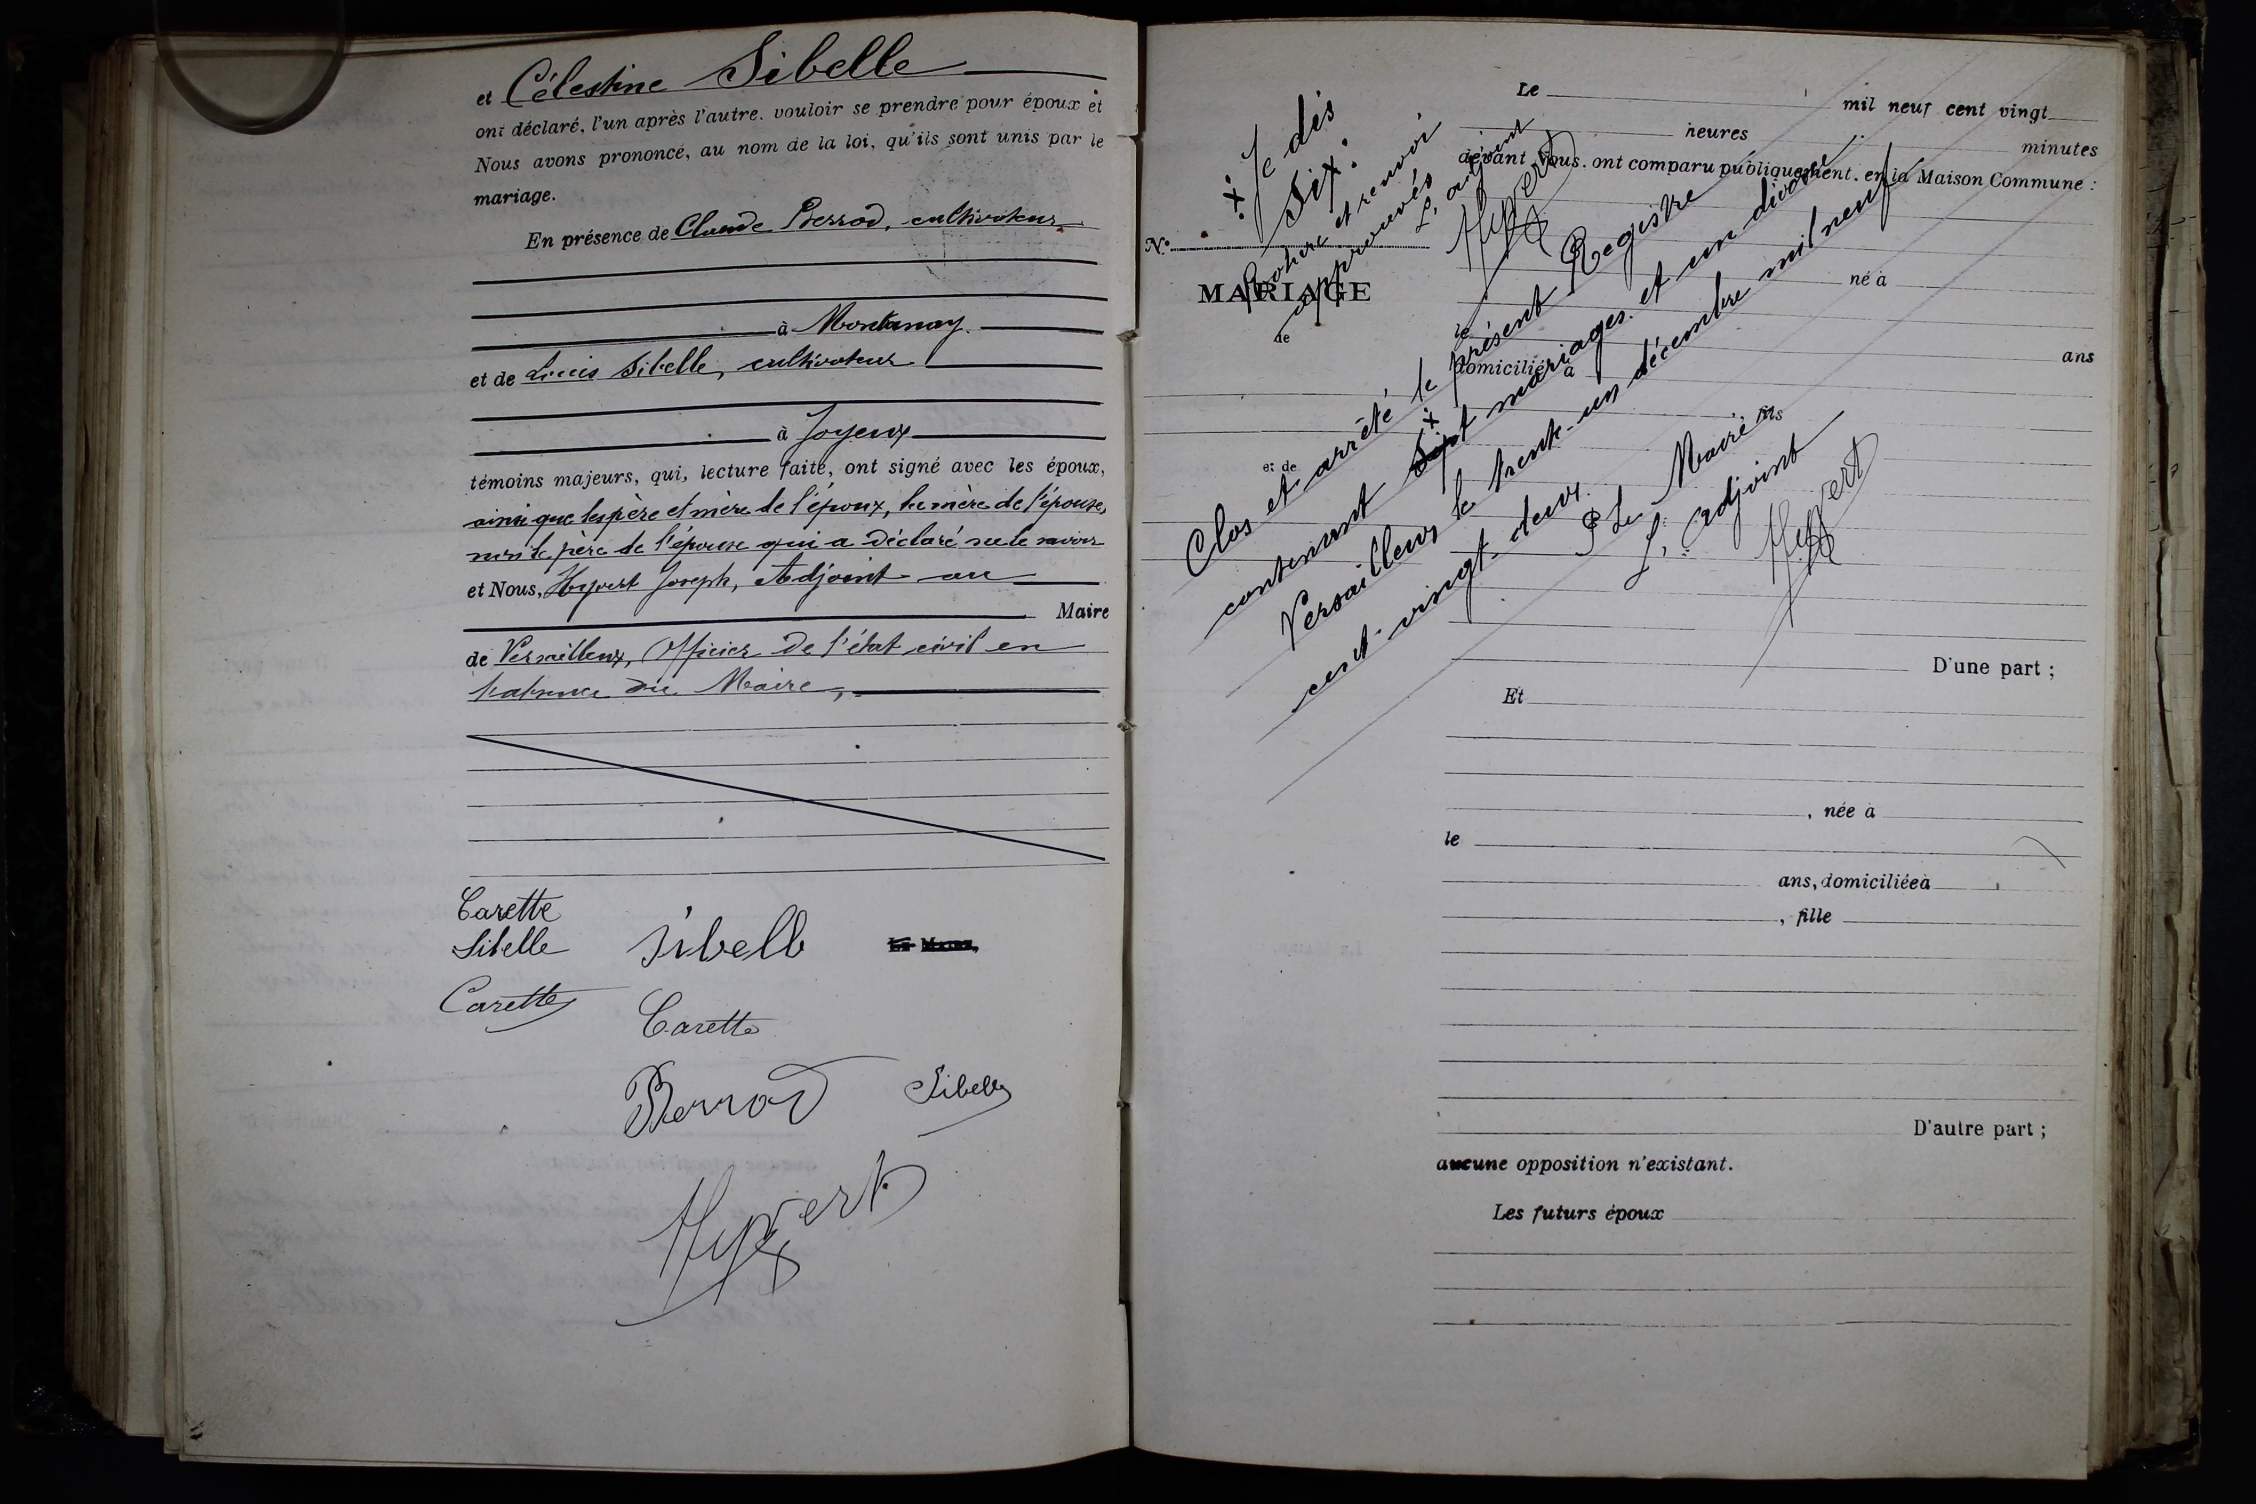 et Célestine Sibelle
ont déclaré, l'un après l'autre. vouloir se prendre pour époux et
Nous avons prononcé, au nom de la loi, qu'ils sont unis par le
mariage.
En présence de Claude Berrod, cultivateur
à Montanay.
et de Louis Sibelle, cultivateur
à Joyeux
témoins majeurs, qui, lecture faite, ont signé avec les époux,
ainsi que les père et mère de l'époux, la mère de l'épouse,
non le père de l'épouse qui a déclaré ne le savoir
et Nous, Hyvert Joseph, Adjoint au
Maire
de Versailleux, Officier de l'état civil en
l'absence du Maire,
Carette
Sibelle
Sibelle
Le Maire,
Carette
Carette
Berrod
Sibelle
Hyvert
x Je dis
Six:
Rature et renvoi
approuvés
L'adjoint
Hyvert
N°
MARIAGE
de
et de
Le mil neuf cent vingt
heures minutes
devant Nous. ont comparu publiquement. en la Maison Commune :
né à
le
ans
domicilié à
fils
Clos et arrêté le présent Registre
contenant sept x mariages et un divorce.
Versailleux le trente-un décembre mil neuf
cent vingt-deux.
P. Le Maire
L'adjoint
Hyvert
D'une part ;
Et
, née à
le
ans, domiciliée à
, fille
D'autre part ;
aucune opposition n'existant.
Les futurs époux